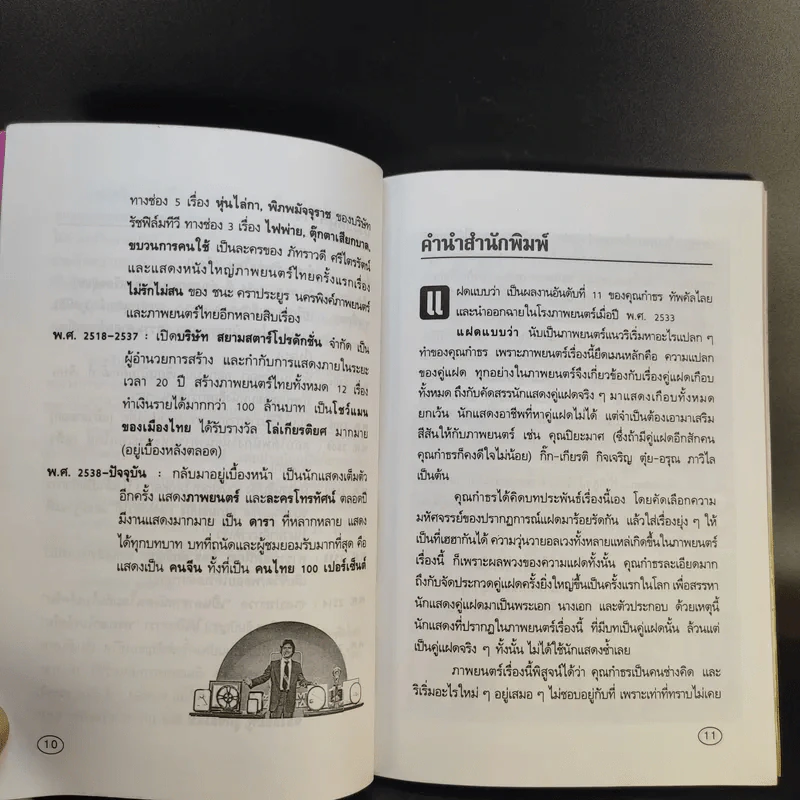 ทางช่อง 5 เรื่อง หุ่นไล่กา, พิภพมัจจุราช ของบริษัท
รัชฟิล์มทีวี ทางช่อง 3 เรื่อง ไฟพ่าย, ตุ๊กตาเสียกบาล,
ขบวนการคนใช้ เป็นละครของ ภัทราวดี ศรีไตรรัตน์
และแสดงหนังใหญ่ภาพยนตร์ไทยครั้งแรกเรื่อง
ไม่รักไม่สน ของ ชนะ คราประยูร นครพิงค์ภาพยนตร์
และภาพยนตร์ไทยอีกหลายสิบเรื่อง
พ.ศ. 2518-2537 : เปิดบริษัท สยามสตาร์โปรดักชั่น จำกัด เป็น
ผู้อำนวยการสร้าง และกำกับการแสดงภายในระยะ
เวลา 20 ปี สร้างภาพยนตร์ไทยทั้งหมด 12 เรื่อง
ทำเงินรายได้มากกว่า 100 ล้านบาท เป็นโชว์แมน
ของเมืองไทย ได้รับรางวัล โล่เกียรติยศ มากมาย
(อยู่เบื้องหลังตลอด)
พ.ศ. 2538-ปัจจุบัน : กลับมาอยู่เบื้องหน้า เป็นนักแสดงเต็มตัว
อีกครั้ง แสดงภาพยนตร์ และละครโทรทัศน์ ตลอดปี
มีงานแสดงมากมาย เป็น ดารา ที่หลากหลาย แสดง
ได้ทุกบทบาท บทที่ถนัดและผู้ชมยอมรับมากที่สุด คือ
แสดงเป็น คนจีน ทั้งที่เป็น คนไทย 100 เปอร์เซ็นต์
10
คำนำสำนักพิมพ์
แฝดแบบว่า เป็นผลงานอันดับที่ 11 ของคุณกำธร ทัพคัลไลย
และนำออกฉายในโรงภาพยนตร์เมื่อปี พ.ศ. 2533
แฝดแบบว่า นับเป็นภาพยนตร์แนวริเริ่มหาอะไรแปลก ๆ
ทำของคุณกำธร เพราะภาพยนตร์เรื่องนี้ยึดเมนหลักคือ ความแปลก
ของคู่แฝด ทุกอย่างในภาพยนตร์จึงเกี่ยวข้องกับเรื่องคู่แฝดเกือบ
ทั้งหมด ถึงกับคัดสรรนักแสดงคู่แฝดจริง ๆ มาแสดงเกือบทั้งหมด
ยกเว้น นักแสดงอาชีพที่หาคู่แฝดไม่ได้ แต่จำเป็นต้องเอามาเสริม
สีสันให้กับภาพยนตร์ เช่น คุณปิยะมาศ (ซึ่งถ้ามีคู่แฝดอีกสักคน
คุณกำธรก็คงดีใจไม่น้อย) กิ๊ก-เกียรติ กิจเจริญ ตุ่ย-อรุณ ภาวิไล
เป็นต้น
คุณกำธรได้คิดบทประพันธ์เรื่องนี้เอง โดยคัดเลือกความ
มหัศจรรย์ของปรากฏการณ์แฝดมาร้อยรัดกัน แล้วใส่เรื่องยุ่ง ๆ ให้
เป็นที่เฮฮากันได้ ความวุ่นวายอลเวงทั้งหลายแหล่เกิดขึ้นในภาพยนตร์
เรื่องนี้ ก็เพราะผลพวงของความแฝดทั้งนั้น คุณกำธรละเอียดมาก
ถึงกับจัดประกวดคู่แฝดครั้งยิ่งใหญ่ขึ้นเป็นครั้งแรกในโลก เพื่อสรรหา
นักแสดงคู่แฝดมาเป็นพระเอก นางเอก และตัวประกอบ ด้วยเหตุนี้
นักแสดงที่ปรากฏในภาพยนตร์เรื่องนี้ ที่มีบทเป็นคู่แฝดนั้น ล้วนแต่
เป็นคู่แฝดจริง ๆ ทั้งนั้น ไม่ได้ใช้นักแสดงซ้ำเลย
ภาพยนตร์เรื่องนี้พิสูจน์ได้ว่า คุณกำธรเป็นคนช่างคิด และ
ริเริ่มอะไรใหม่ ๆ อยู่เสมอ ๆ ไม่ชอบอยู่กับที่ เพราะเท่าที่ทราบไม่เคย
11